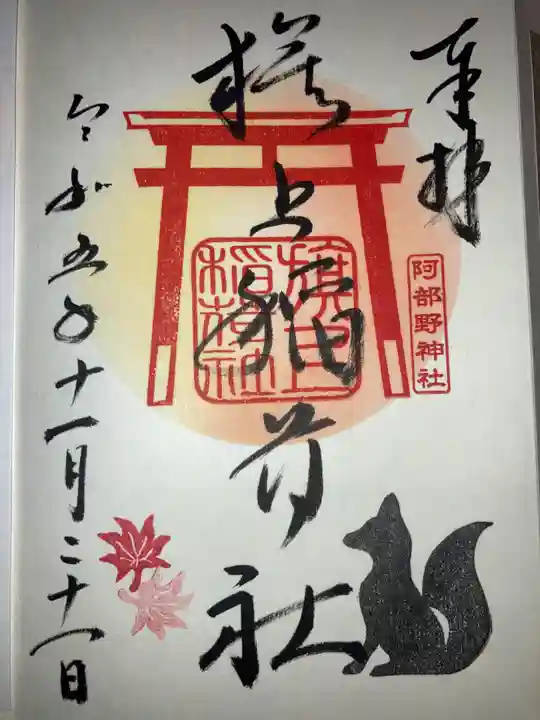 奉拝
旗上稲荷社
旗上
稲荷社
阿部野神社
令和五年十一月二十一日